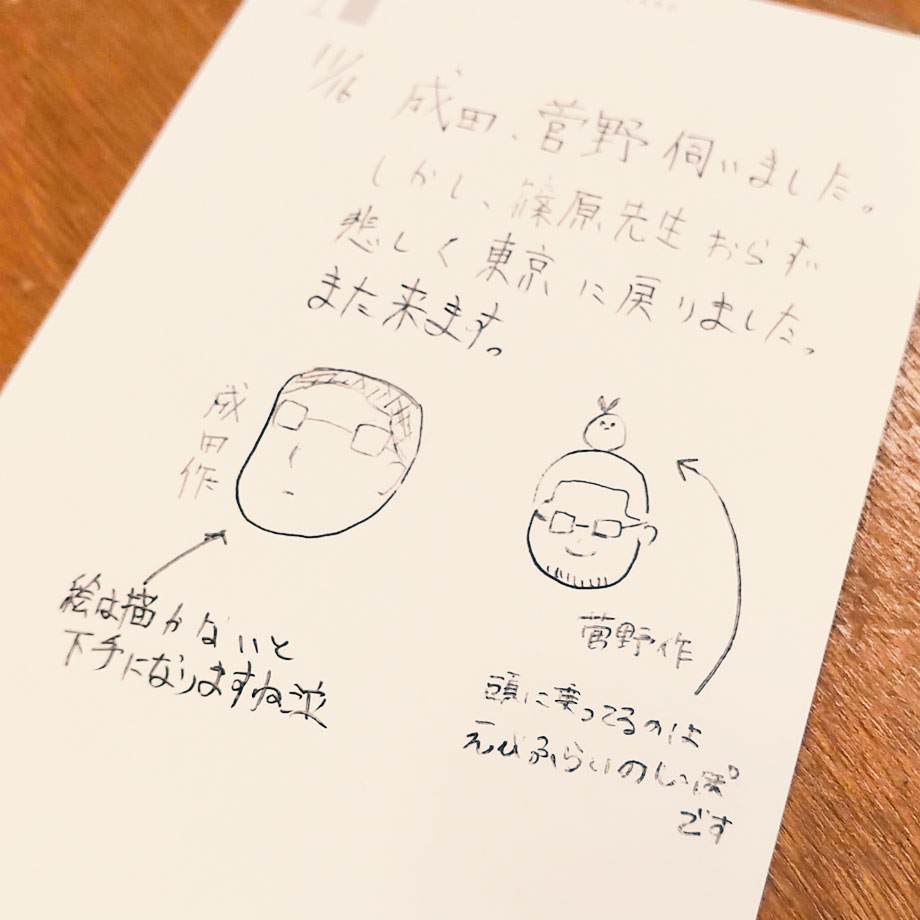 11/16
成田、菅野伺いました。
しかし、篠原先生おらず
悲しく東京に戻りました。
また来ます。
成田作
絵は描かないと
下手になりますね泣
菅野作
頭に乗ってるのは
えびふらいのしっぽ
です